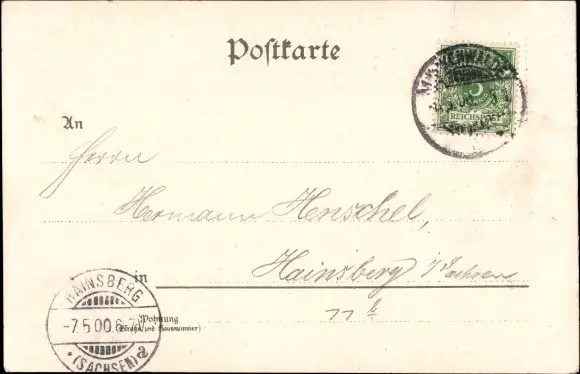 Postkarte
5
REICHSPOST
An
Herrn
Hermann Henschel,
in Hainsberg i/Sachsen
Wohnung
(Straße und Hausnummer)
77
HAINSBERG
-7.5.00.6-7N.
(SACHSEN) a